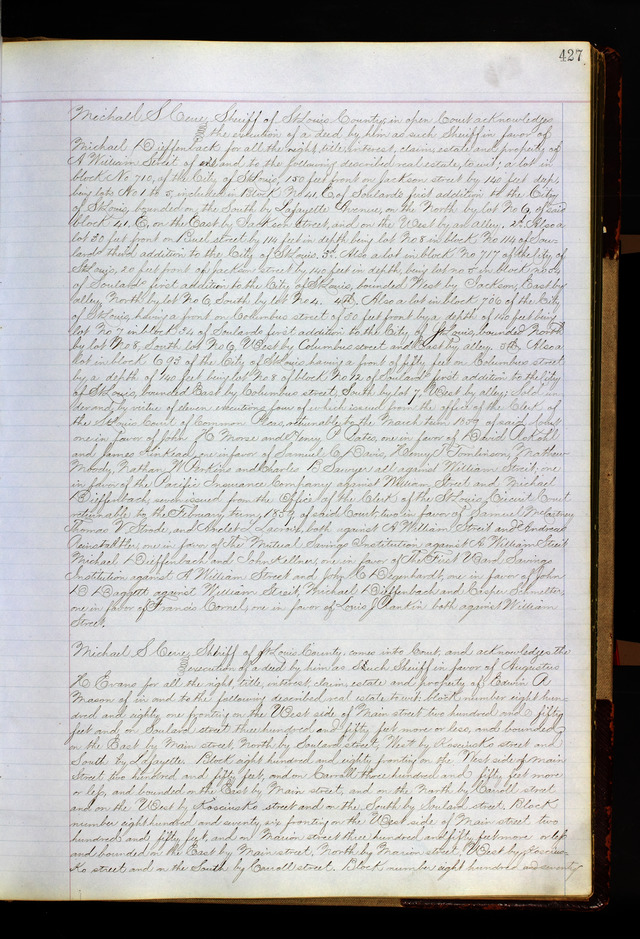 427
Michael S Cerre, Sheriff of St Louis County, in open Court acknowledges
the execution of a deed by him as such Sheriff in favor of
Michael Dieffenback for all the right, title, interest, claim, estate and property of
A William Street of in and to the following described real estate, to wit; a lot in
block No 710, of the City of St Louis, 150 feet front on Jackson street by 140 feet deep,
being lots No 1 to 5, inclusive in Block No 41. E, of Soulards first addition to the City
of St Louis, bounded on the South by Lafayette Avenue, on the North by lot No 6, of said
block 41. E, on the East by Jackson Street, and on the West by an alley, 2d. Also a
lot 30 feet front on Buel street by 114 feet in depth being lot No 8 in block No 114 of Sou-
lards third addition to the City of St Louis. 3d. Also a lot in block No 717 of the City of
St Louis, 20 feet front of Jackson street by 140 feet in depth, being lot no 5 in block No
of Soulards first addition to the City of St Louis, bounded West by Jackson, East by
alley, North by lot No 6, South by lot No 4. 4th, Also a lot in block 706 of the City
of St Louis, having a front on Columbus street of 30 feet front by a depth of 140 feet being
lot No 7 in block 34 of Soulards first addition to the City of St Louis, bounded North
by lot No 8, South lot No 6, West by Columbus street and East by alley, 5th. Also a
lot in block 693 of the City of St Louis having a front of fifty feet on Columbus street
by a depth of 140 feet being lot No 8 of block No 12 of Soulards first addition to the City
of St Louis, bounded East by Columbus street, South by lot 7, West by alley; Sold un-
der and by virtue of eleven executions, four of which issued from the office of the Clerk of
the St Louis Court of Common Pleas, returnable by the March term 1859 of said Court
one in favor of John H. Morse and Henry P. Yates, one in favor of David
and James, one in favor of Samuel C. Davis, Henry T. Tomlinson, Mathew
Moody, Nathan W Perkins and Charles B Sawyer all against William Street; one
in favor of the Pacific Insurance Company against William Street and Michael
Dieffenbach, seven issued from the Office of the Clerk of the St Louis Circuit Court
returnable by the February term, 1859 of said Court, two in favor of Samuel McCartney,
Thomas V Strode, and Andrew both against A William Street and Andreas
one in favor of The Mutual Savings Institution, against A William Street
Michael Dieffenbach and John Kellner, one in favor of the First Ward Savings
Institution against A William Street and John C Degenhardt, one in favor of John
D Daggett against William Street, Michael Dieffenbach and Casper Schnelter,
one in favor of Francis Cornel, one in favor of Louis J. Rankin both against William
Street.
Michael S Cerre, Sheriff of St Louis County, comes into Court, and acknowledges the
execution of a deed by him as Such Sheriff in favor of Augustus
H Evans for all the right, title, interest, claim, estate and property of Edwin R.
Mason of in and to the following described real estate to wit: block number eight hun-
dred and eighty one fronting on the West side of Main street two hundred and fifty
feet and on Soulard street three hundred and fifty feet more or less, and bounded
on the East by Main street, North by Soulard street, West by Kosciusko street and
South by Lafayette. Block eight hundred and eighty fronting on the West side of Main
Street two hundred and fifty feet, and on Carroll three hundred and fifty feet more
or less, and bounded on the East by Main street, and on the North by Carroll street
and on the West by Kosciusko street and on the South by Soulard street. Block
number eight hundred and seventy six fronting on the West side of Main street two
hundred and fifty feet, and on Marion street three hundred and fifty feet more or less
and bounded on the East by Main street, North by Marion street, West by Koscius-
ko street and on the South by Carroll street. Block number eight hundred and seventy